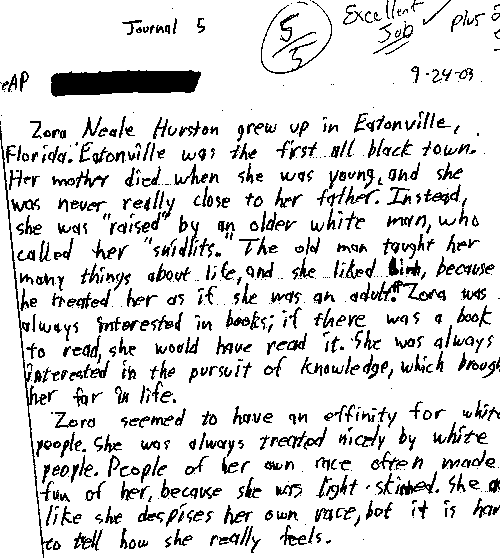 Journal 5
5/5
Excellent Job ✓ plus
eAP
9-24-03
Zora Neale Hurston grew up in Eatonville,
Florida. Eatonville was the first all black town.
Her mother died when she was young, and she
was never really close to her father. Instead,
she was "raised" by an older white man, who
called her "snidlits." The old man taught her
many things about life, and she liked him, because
he treated her as if she was an adult. Zora was
always interested in books; if there was a book
to read, she would have read it. She was always
interested in the pursuit of knowledge, which brough
her far in life.
Zora seemed to have an effinity for white
people. She was always treated nicely by white
people. People of her own race often made
fun of her, because she was light-skinned. She
like she despises her own race, but it is har
to tell how she really feels.